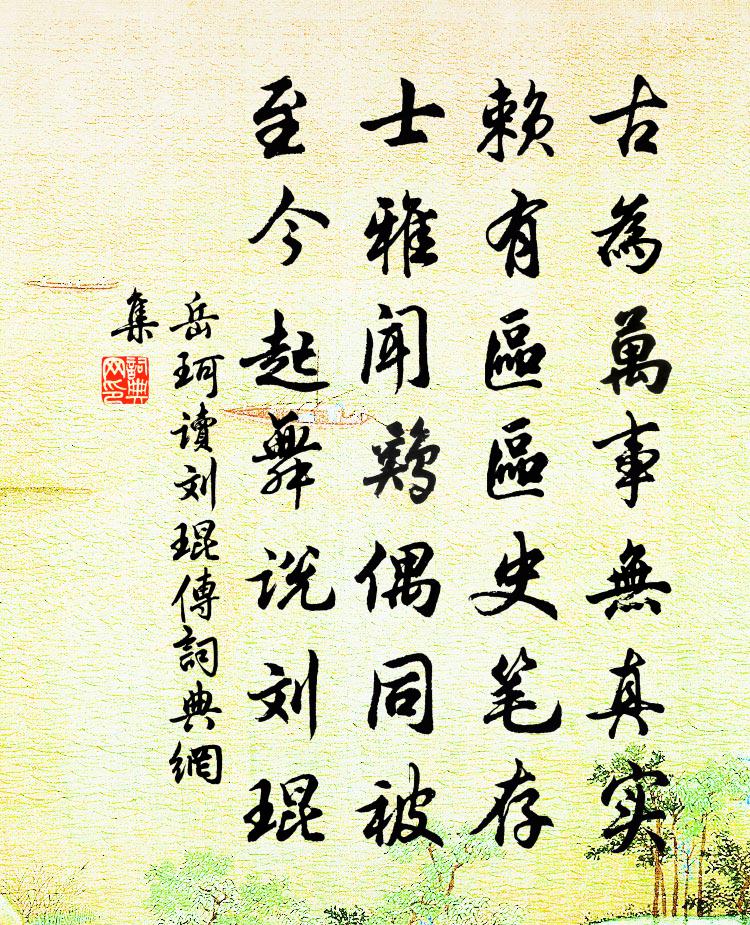 古為萬事無真实
赖有區區史笔存
士雅闻鷄偶同被
至今起舞说刘琨
岳珂讀刘琨傳詞典網
集
詞典
网印